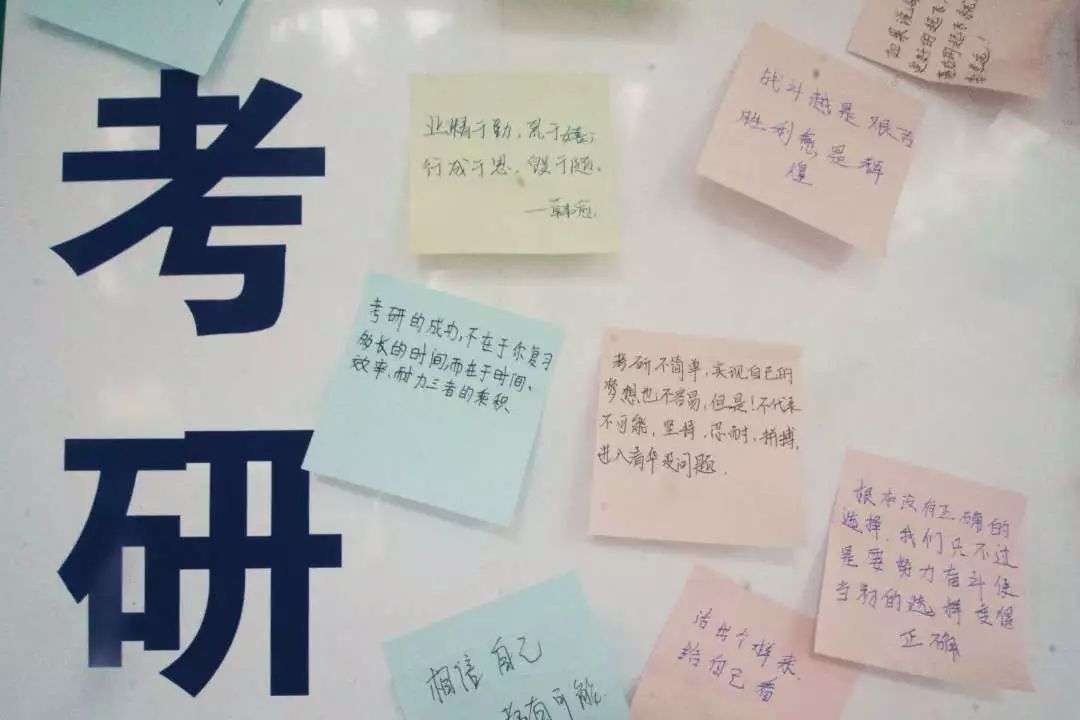 考研
业精于勤,荒于嬉;
行成于思,毁于随。
——韩愈
战斗越是艰苦
胜利愈是辉
煌
如果没
更好的起飞
考研的成功,不在于你复习
多长的时间,而在于时间、
效率、耐力三者的乘积
考研不简单,实现自己的
梦想也不容易,但是!不代表
不可能,坚持,忍耐,拼搏,
进入清华没问题.
根本没有正确的
选择,我们只不过
是要努力奋斗使
当初的选择变得
正确
相信自己
都有可能
活出个样来
给自己看